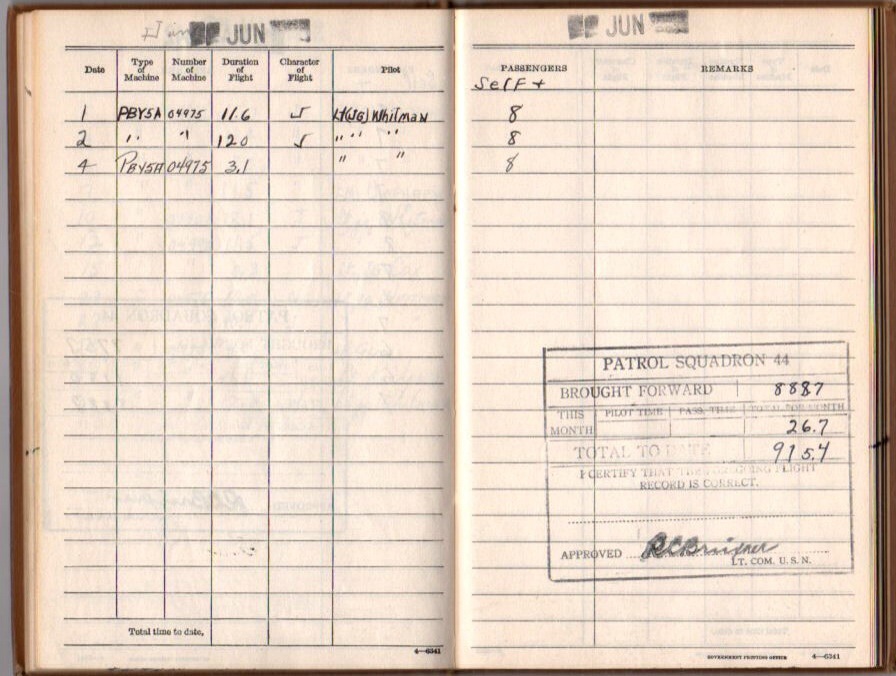 JUN
Date Type of Machine Number of Machine Duration of Flight Character of Flight Pilot
1 PBY5A 04975 11.6 J Lt(JG) Whitman
2 " " " 12.0 J " " " "
4 PBY5A 04975 3.1 " "
Total time to date,
4—6341
JUN
PASSENGERS REMARKS
Self +
8
8
8
PATROL SQUADRON 44
BROUGHT FORWARD 888.7
THIS MONTH PILOT TIME PASS. TIME TOTAL FOR MONTH
26.7
TOTAL TO DATE 915.4
I CERTIFY THAT THE FOREGOING FLIGHT
RECORD IS CORRECT.
APPROVED
LT. COM. U. S. N.
GOVERNMENT PRINTING OFFICE 4—6341